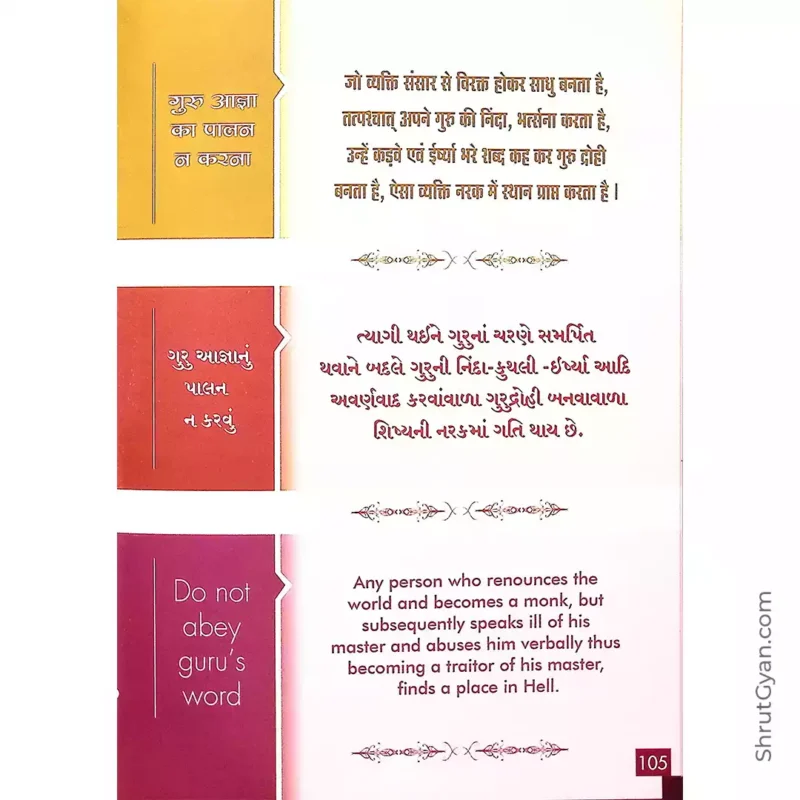 गुरु आज्ञा
का पालन
न करना
जो व्यक्ति संसार से विरक्त होकर साधु बनता है,
तत्पश्चात् अपने गुरु की निंदा, भर्त्सना करता है,
उन्हें कड़वे एवं ईर्ष्या भरे शब्द कह कर गुरु द्रोही
बनता है, ऐसा व्यक्ति नरक में स्थान प्राप्त करता है ।
ગુરુ આજ્ઞાનું
પાલન
ન કરવું
ત્યાગી થઈને ગુરુનાં ચરણે સમર્પિત
થવાને બદલે ગુરુની નિંદા-કુથલી -ઈર્ષ્યા આદિ
અવર્ણવાદ કરવાંવાળા ગુરુદ્રોહી બનવાવાળા
શિષ્યની નરકમાં ગતિ થાય છે.
Do not
abey
guru's
word
Any person who renounces the
world and becomes a monk, but
subsequently speaks ill of his
master and abuses him verbally thus
becoming a traitor of his master,
finds a place in Hell.
105
ShrutGyan.com